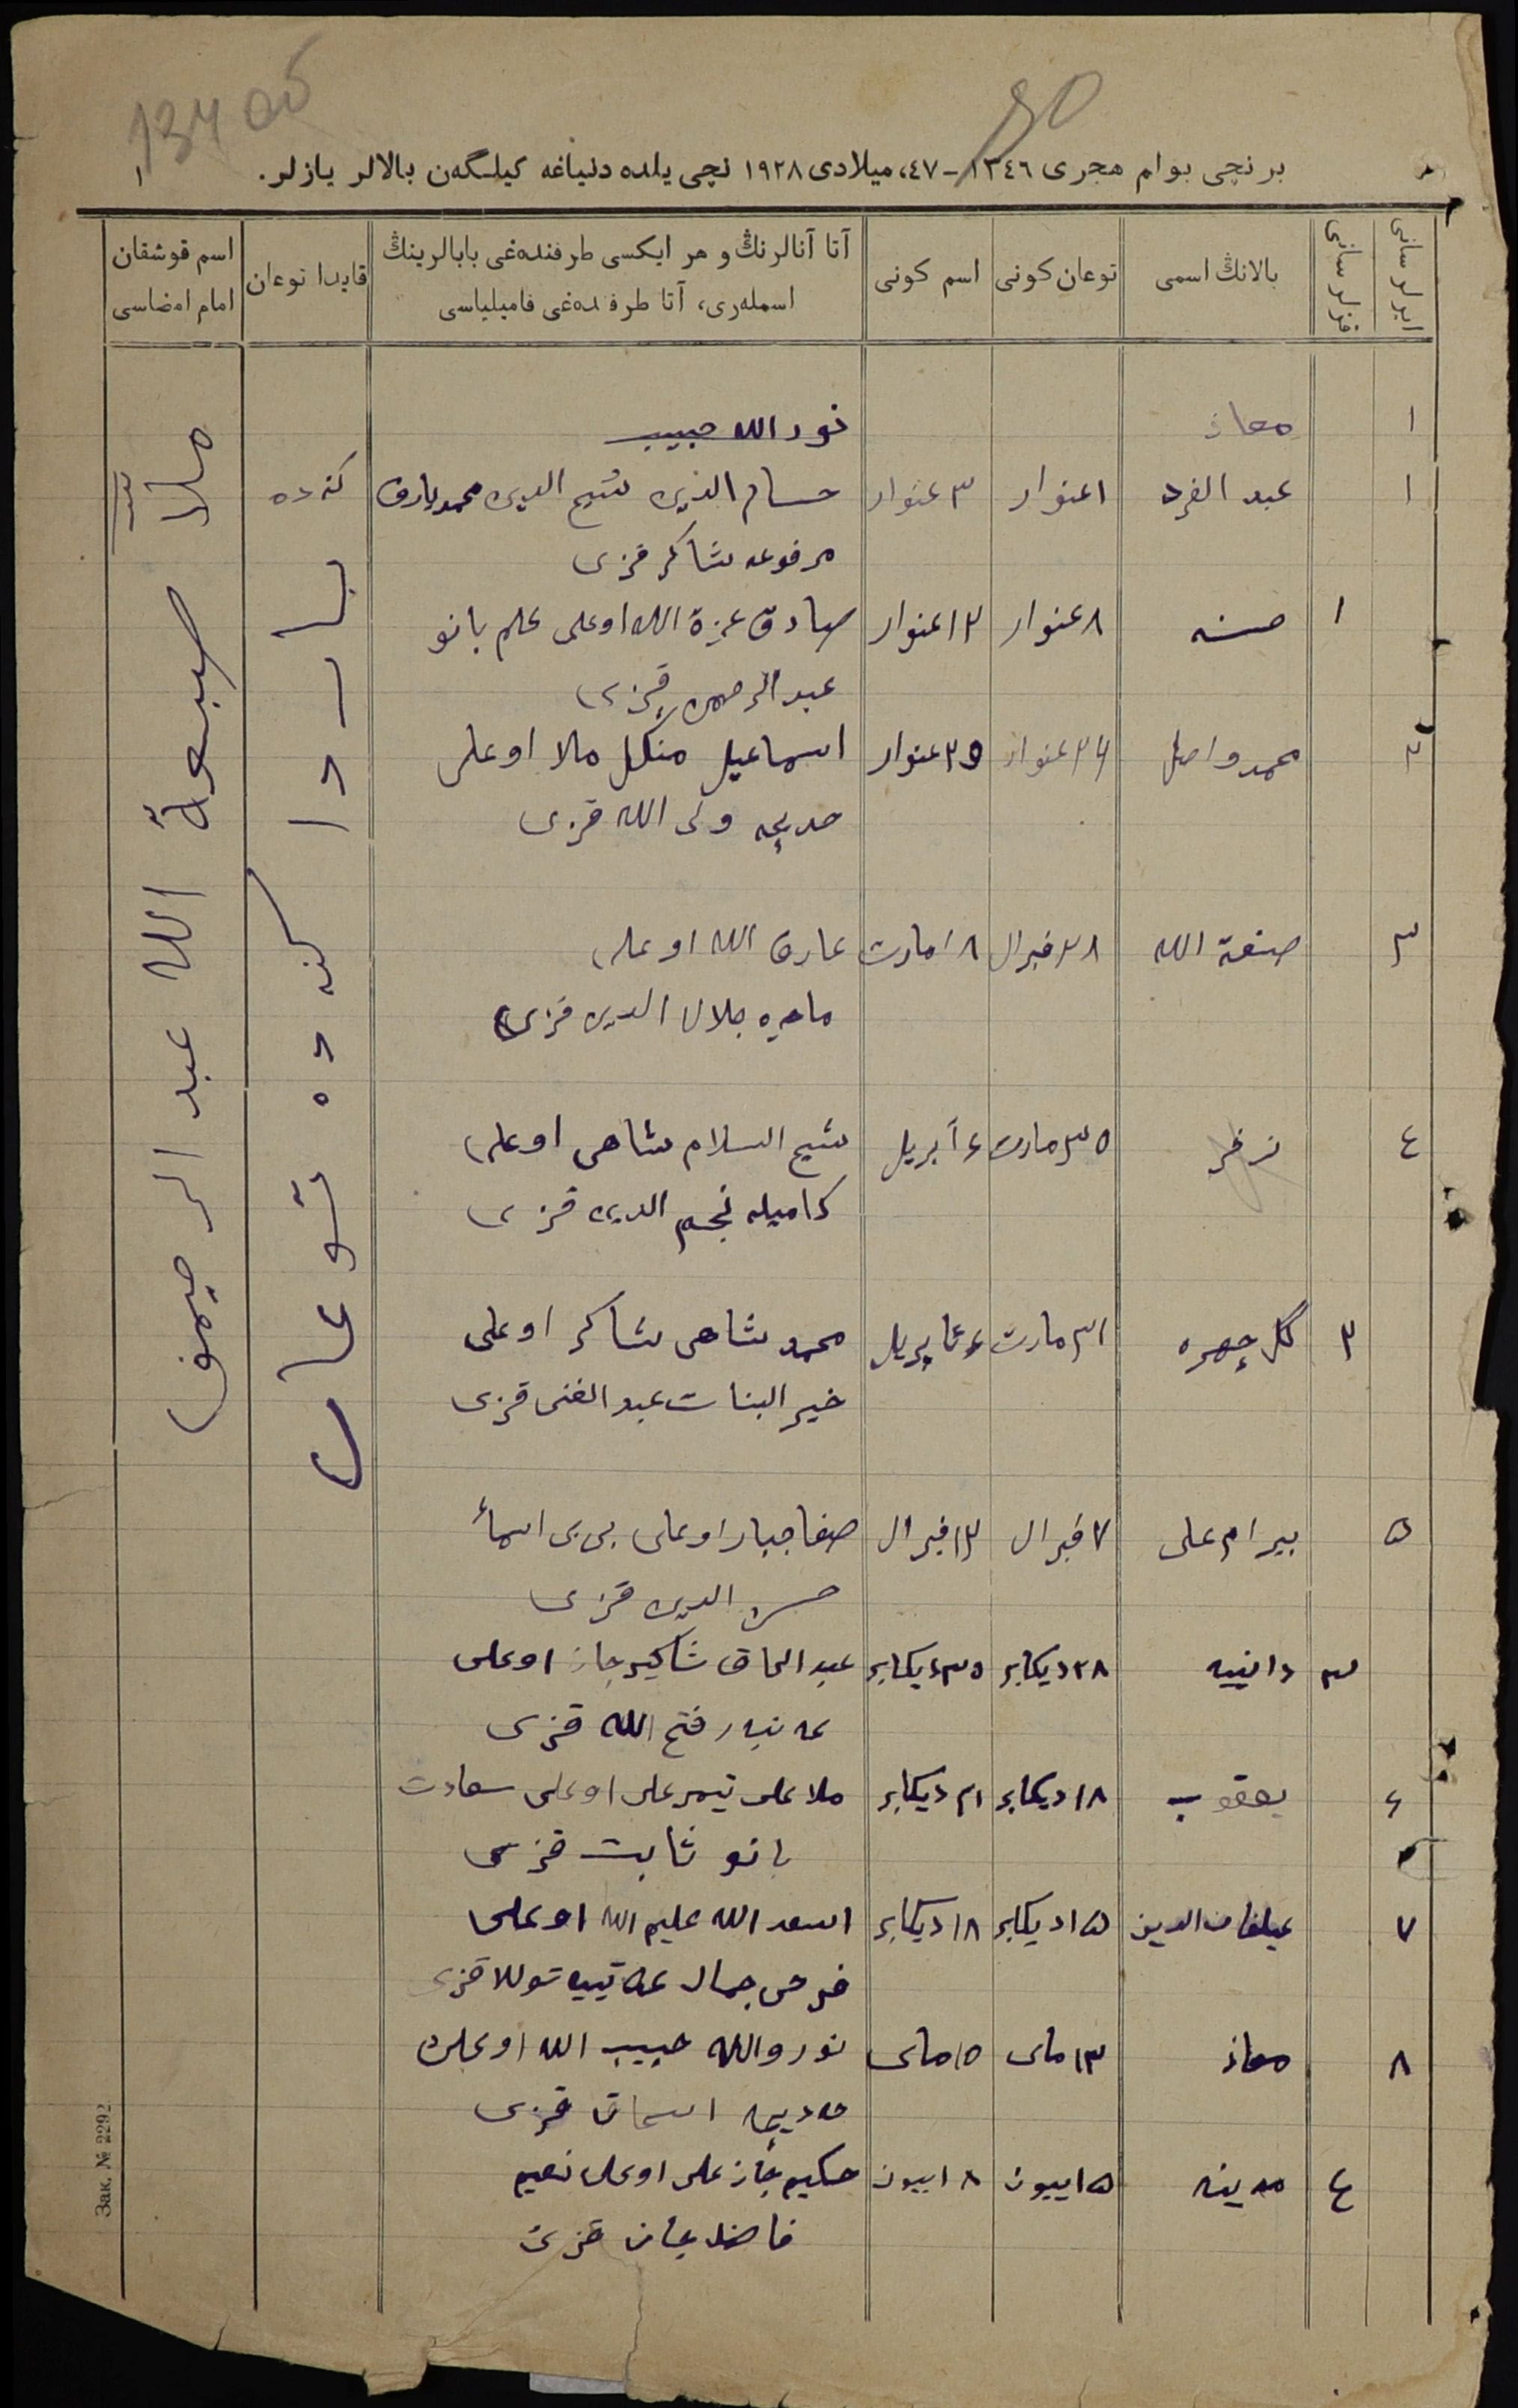 134 об
80
برنچی بوام هجری ١٣٤٦-٤٧، میلادی ١٩٢٨ نچی یلده دنیاغه کیلگەن بالالر یازلر.
١
ایرلر سانی
قزلر سانی
بالانڭ اسمی
توغان کونی
اسم کونی
آتا آنالرنڭ و هر ایکسی طرفندەغی بابالرینڭ
اسملەری، آتا طرفندەغی فامیلیاسی
قایدا توغان
اسم قوشقان
امام امضاسی
١ معاذ نور الله حبیب
١ عبد الفرد ١ غنوار ٣ غنوار حسام الدین شیخ الدین محمدیارف کنەدە
مرفوعه شاکر قزی
١ حسنه ٨ غنوار ١٢ غنوار صادق عزة الله اوغلی علم بانو
عبد الرحمن قزی
٢ محمد واصل ٢٤ غنوار ٢٩ غنوار اسماعیل منکل ملا اوغلی
خدیجه ولی الله قزی
٣ صنعة الله ٢٨ فبرال ١٨ مارت عارف الله اوغلی
ماهره جلال الدین قزی
٤ ظفر ٣٥ مارت ٦ آبریل شیخ السلام شاهی اوغلی
کامیله نجم الدین قزی
٢ گل چهره ٣١ مارت ٦ آپریل محمد شاهی شاکر اوغلی
خیر البنات عبد الغنی قزی
٥ بیرام علی ٧ فبرال ١٢ فبرال صفا جبار اوغلی بی بی اسمأ
حسن الدین قزی
٣ دانییه ٢٨ دیکابر ٣٥ دیکابر عبد الحاق شاکیرجان اوغلی
فتح الله قزی
٦ یعقوب ١٨ دیکابر ٢١ دیکابر ملا علی تیمرعلی اوغلی سعادت
بانو ثابت قزی
٧ ١٥ دیکابر ١٨ دیکابر اسعد الله علیم الله اوغلی
جمال قزی
٨ معاذ ١٣ مای ١٥ مای نور والله حبیب الله اوغلی
خەدیجە اسحاق قزی
٤ مدینه ١٥ اییون ١٨ اییون حکیم جان علی اوغلی نعیم
فاضلجان قزی
باردا کنەدە توغان
ملا صبیغة الله عبد الرحیمف
Зак. № 2292